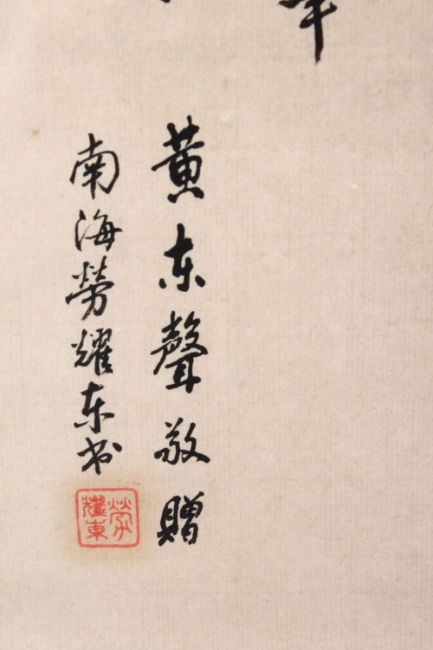 年
黄东聲敬贈
南海勞耀东书
勞耀東